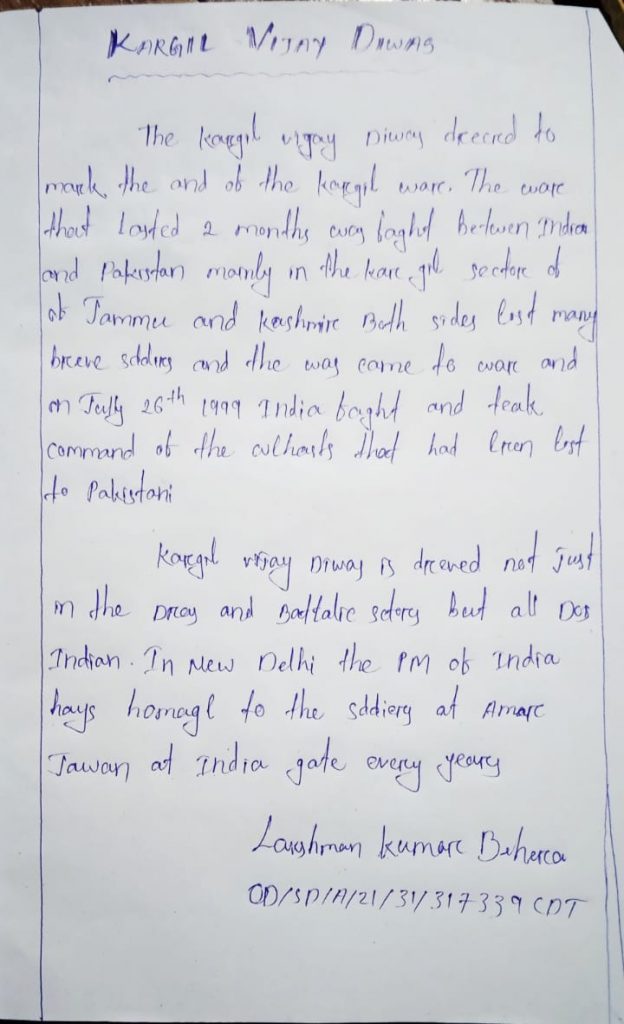 KARGIL VIJAY DIWAS
The kargil vijay Diwas to
mark the and of the kargil ware. The ware
that lasted 2 months was faght Betwen Indian
and Pakistan mainly in the karc gil sectore of
of Jammu and kashmirc Both sides lost many
breeve and the was came to ware and
on July 26th 1999 India faght and teak
command of the that had been lost
to Pakistani
Kargil vijay Diwas is not Just
in the Dras and but all
Indian. In New Delhi the PM of India
hays homage to the at Amarc
Jawan at India gate every years
Laxshman kumarc Beherca
OD/SD/A/21/31/317339 CDT